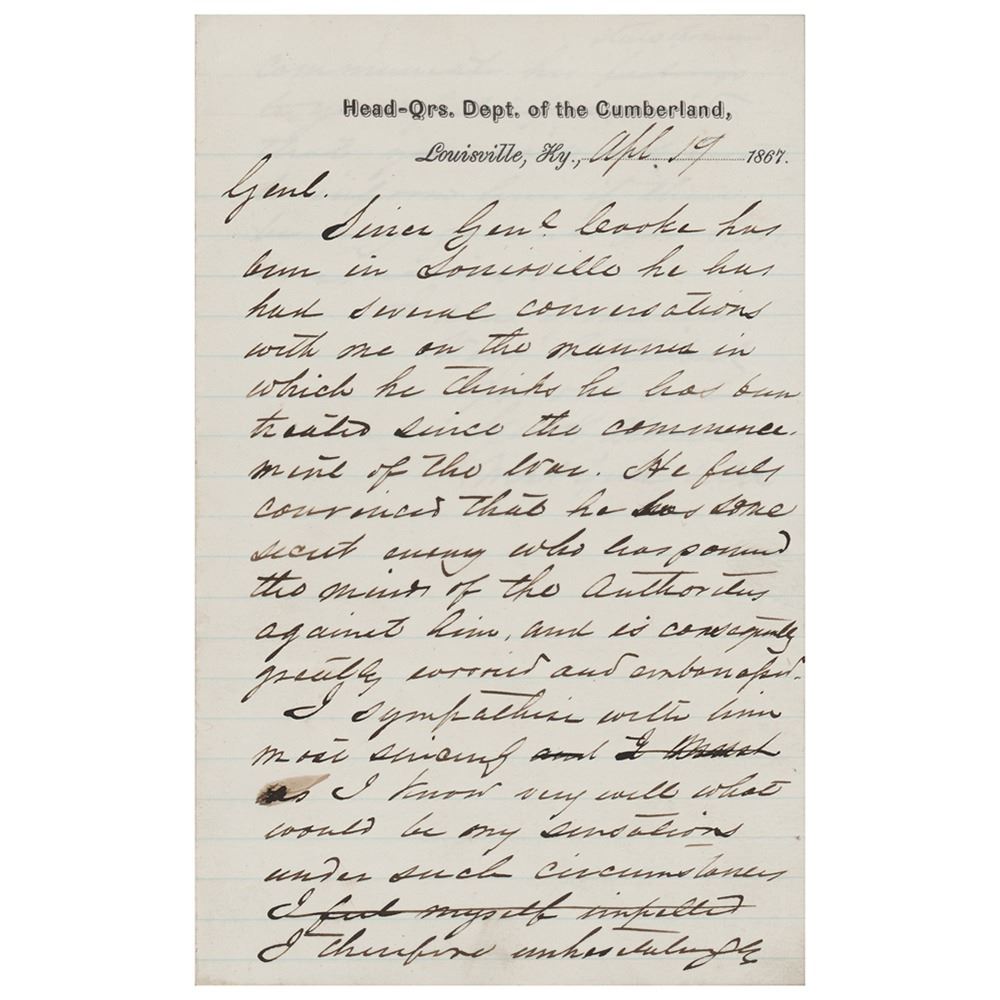 Head-Qrs. Dept. of the Cumberland,
Louisville, Ky., Apl. 19 1867.
Genl.
Since Genl. Cooke has
been in Louisville he has
had several conversations
with me on the manner in
which he thinks he has been
treated since the commence-
ment of the War. He feels
convinced that he has some
secret enemy who has poisoned
the minds of the Authorities
against him, and is consequently
greatly worried and embarrassed.
I sympathise with him
most sincerely and I
as I know very well what
would be my sensations
under such circumstances
I feel myself impelled
I therefore unhesitatingly